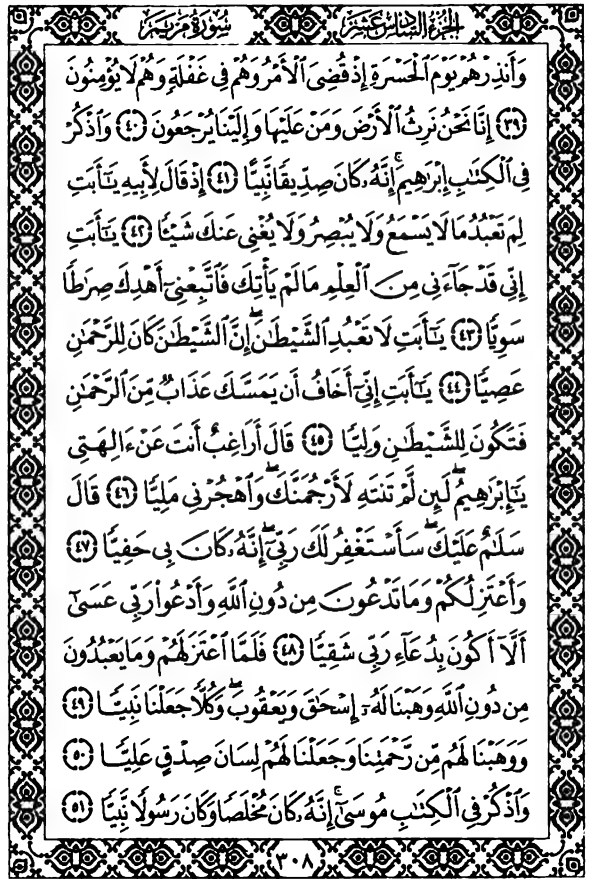 الجزء السادس عشر سورة مريم
وَأَنذِرْهُمْ يَوْمَ الْحَسْرَةِ إِذْ قُضِيَ الْأَمْرُ وَهُمْ فِي غَفْلَةٍ وَهُمْ لَا يُؤْمِنُونَ
﴿٣٩﴾ إِنَّا نَحْنُ نَرِثُ الْأَرْضَ وَمَنْ عَلَيْهَا وَإِلَيْنَا يُرْجَعُونَ ﴿٤٠﴾ وَاذْكُرْ
فِي الْكِتَٰبِ إِبْرَٰهِيمَ ۚ إِنَّهُۥ كَانَ صِدِّيقًا نَّبِيًّا ﴿٤١﴾ إِذْ قَالَ لِأَبِيهِ يَٰٓأَبَتِ
لِمَ تَعْبُدُ مَا لَا يَسْمَعُ وَلَا يُبْصِرُ وَلَا يُغْنِي عَنكَ شَيْـًٔا ﴿٤٢﴾ يَٰٓأَبَتِ
إِنِّي قَدْ جَآءَنِي مِنَ الْعِلْمِ مَا لَمْ يَأْتِكَ فَاتَّبِعْنِيٓ أَهْدِكَ صِرَٰطًا
سَوِيًّا ﴿٤٣﴾ يَٰٓأَبَتِ لَا تَعْبُدِ الشَّيْطَٰنَ ۖ إِنَّ الشَّيْطَٰنَ كَانَ لِلرَّحْمَٰنِ
عَصِيًّا ﴿٤٤﴾ يَٰٓأَبَتِ إِنِّيٓ أَخَافُ أَن يَمَسَّكَ عَذَابٌ مِّنَ الرَّحْمَٰنِ
فَتَكُونَ لِلشَّيْطَٰنِ وَلِيًّا ﴿٤٥﴾ قَالَ أَرَاغِبٌ أَنتَ عَنْ ءَالِهَتِي
يَٰٓإِبْرَٰهِيمُ ۖ لَئِن لَّمْ تَنتَهِ لَأَرْجُمَنَّكَ ۖ وَاهْجُرْنِي مَلِيًّا ﴿٤٦﴾ قَالَ
سَلَٰمٌ عَلَيْكَ ۖ سَأَسْتَغْفِرُ لَكَ رَبِّيٓ ۖ إِنَّهُۥ كَانَ بِي حَفِيًّا ﴿٤٧﴾
وَأَعْتَزِلُكُمْ وَمَا تَدْعُونَ مِن دُونِ اللَّهِ وَأَدْعُوا۟ رَبِّي عَسَىٰٓ
أَلَّآ أَكُونَ بِدُعَآءِ رَبِّي شَقِيًّا ﴿٤٨﴾ فَلَمَّا اعْتَزَلَهُمْ وَمَا يَعْبُدُونَ
مِن دُونِ اللَّهِ وَهَبْنَا لَهُۥٓ إِسْحَٰقَ وَيَعْقُوبَ ۖ وَكُلًّا جَعَلْنَا نَبِيًّا ﴿٤٩﴾
وَوَهَبْنَا لَهُم مِّن رَّحْمَتِنَا وَجَعَلْنَا لَهُمْ لِسَانَ صِدْقٍ عَلِيًّا ﴿٥٠﴾
وَاذْكُرْ فِي الْكِتَٰبِ مُوسَىٰٓ ۚ إِنَّهُۥ كَانَ مُخْلَصًا وَكَانَ رَسُولًا نَّبِيًّا ﴿٥١﴾
٣٠٨